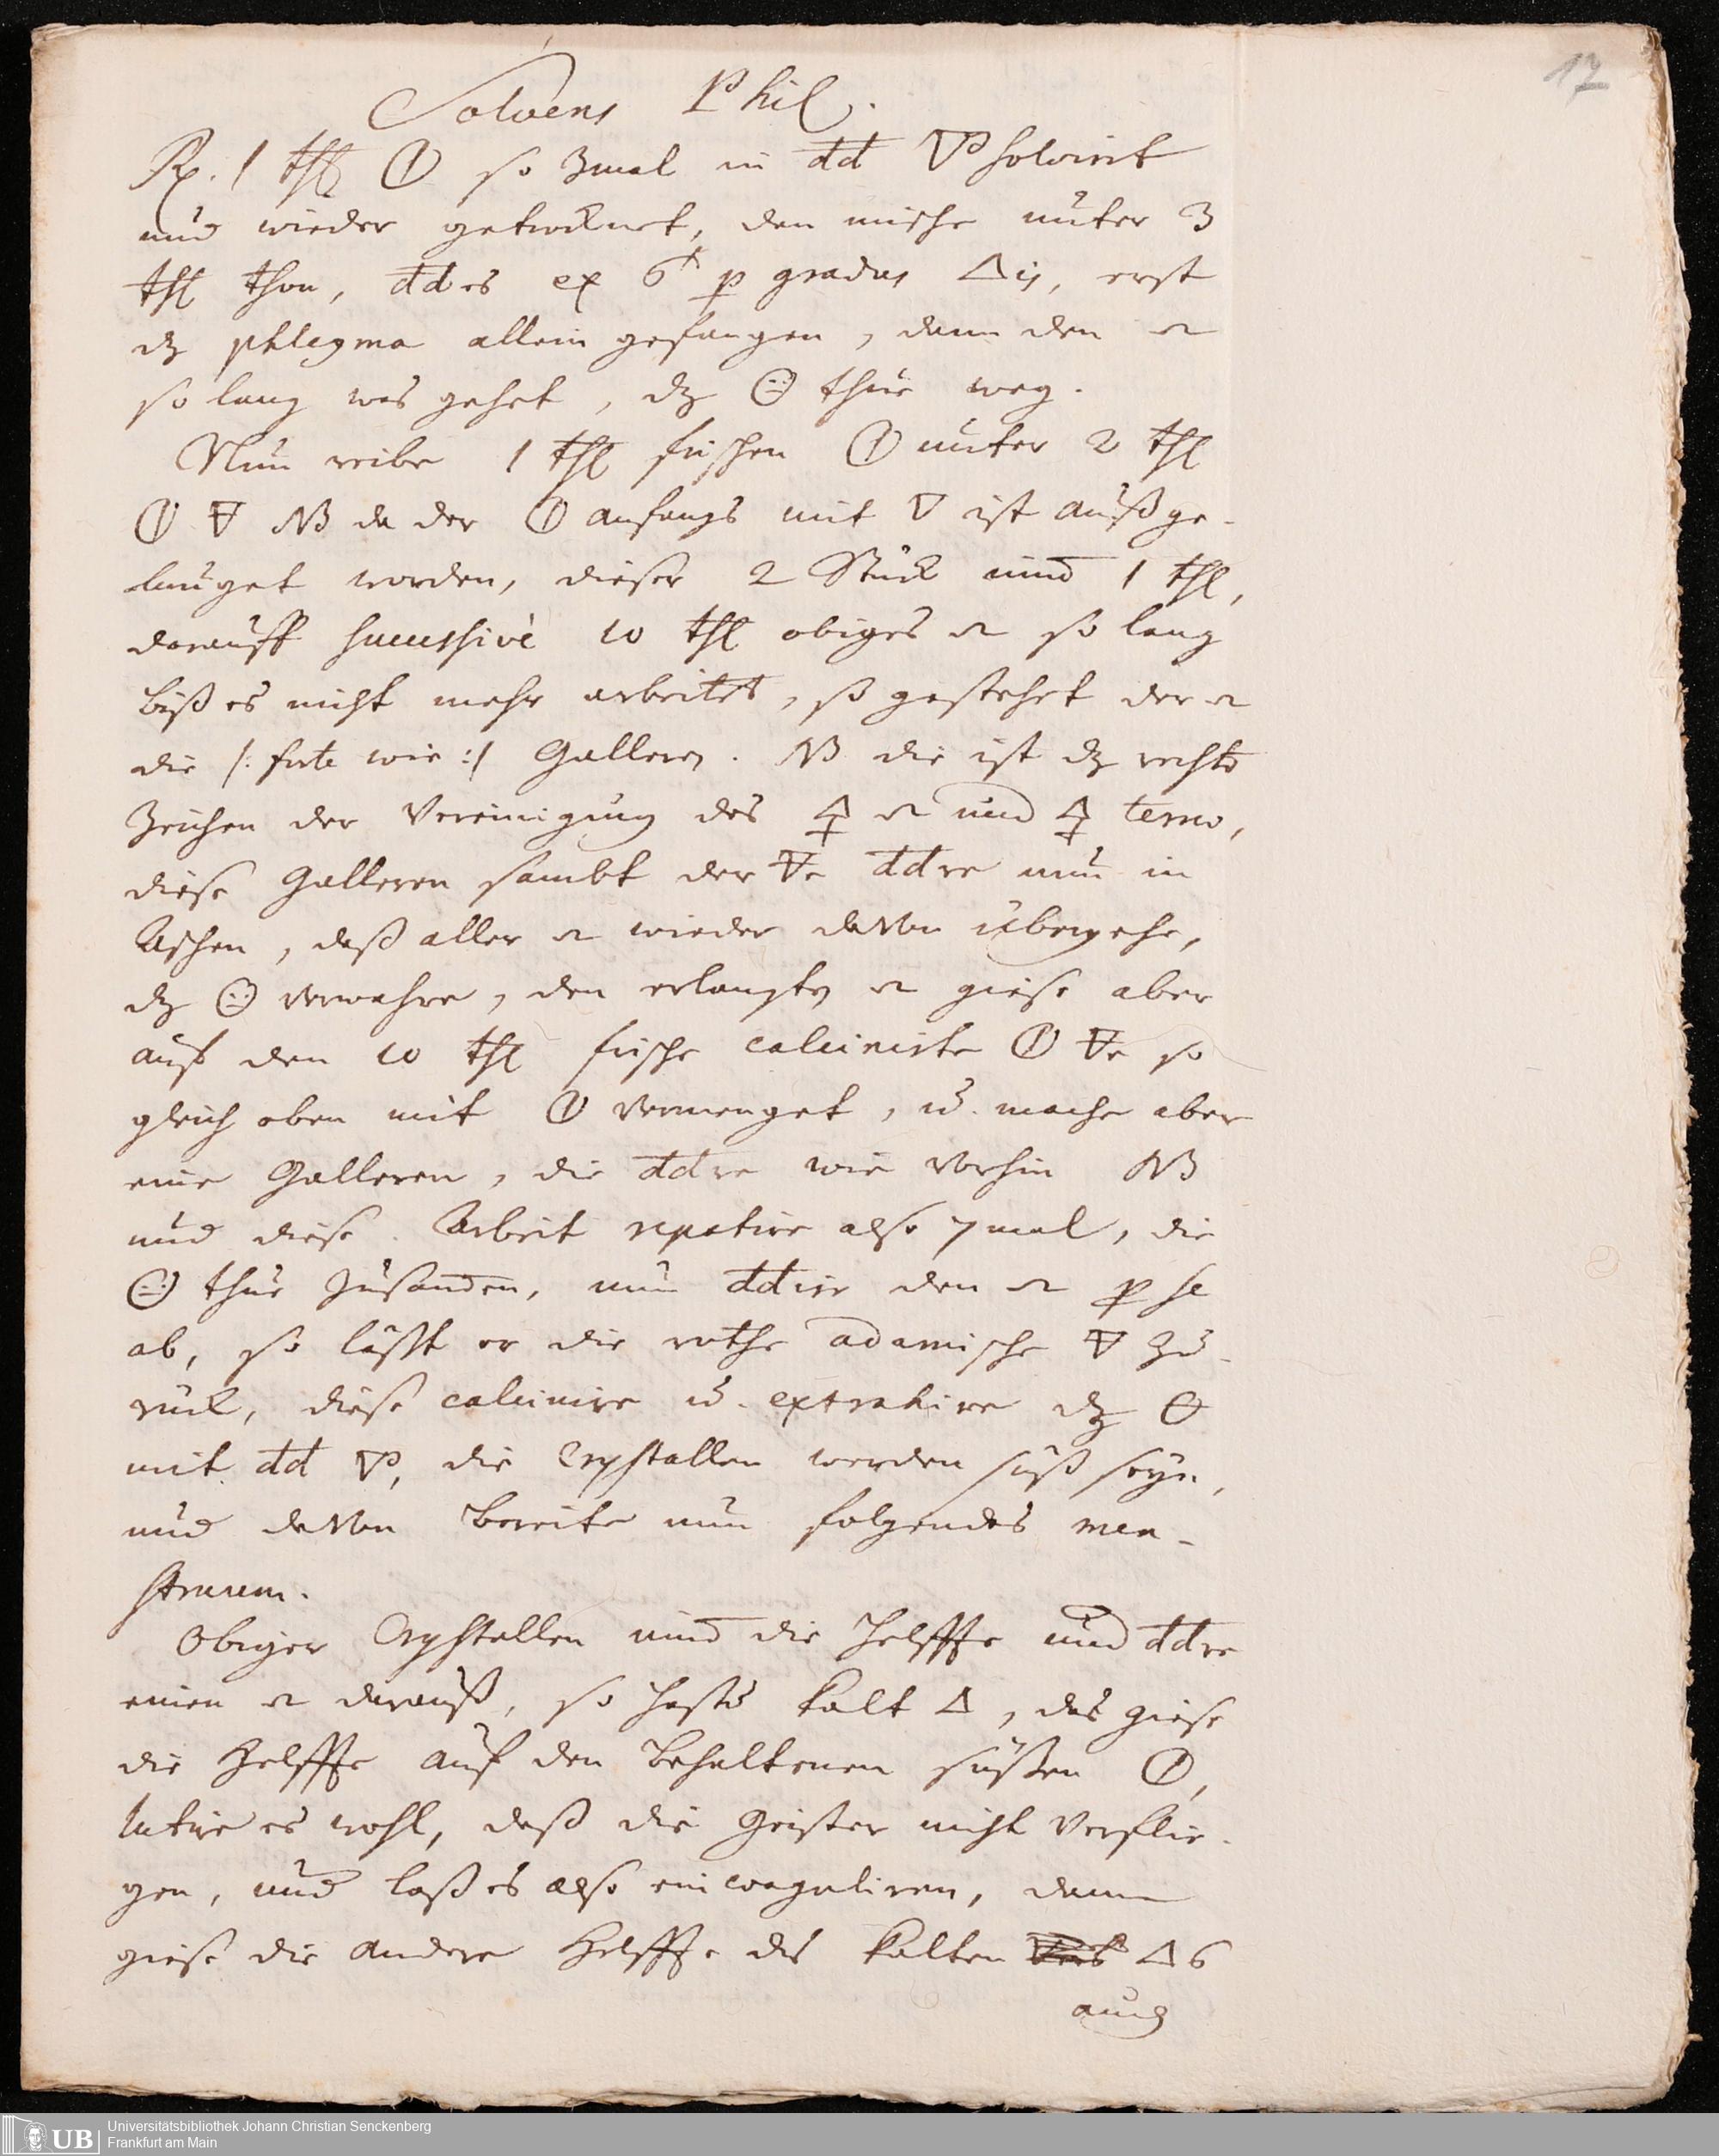 17
Solvens Phil.
Rp. 1 thl 🜕 so 3mal in dd 🜄 solvirt
und wieder getrocknet, den mische unter 3
thl thon, dd es ex per gradus 🜂is, erst
dz phlegma allein gefangen, dann den
so lang was gehet, dz thue weg.
Nun reibe 1 thl frischen 🜕 unter 2 thl
🜕 🜃 NB da der 🜕 anfangs mit 🜄 ist außge-
lauget worden, dieser 2 Stück nim̅ 1 thl,
darauff successivè 10 thl obiges so lang
biß es nicht mehr arbeitet, so gestehet der
die /: forte wie :/ Gallerey. NB die ist dz rechte
Zeichen der Vereinigung des 🜍 und 🜍 terno,
diese Galleren sambt der 🜃e ddre nun in
Aschen, daß aller wieder davon übergehe,
dz verwahre, den erlangten giese aber
auf den 10 thl frische calcinirte 🜕 🜃e so
gleich oben mit 🜕 vermenget, u. mache aber
eine Galleren, die ddre wie vorhin NB
und diese Arbeit repetire also 7mal, die
thue zusam̅en, nun ddire den per se
ab, so läßt er die rothe adamische 🜃 zu-
rück, diese calcinire u. extrahire dz 🜔
mit dd 🜄, die Crystallen werden süß seyn,
und davon bereite nun folgendes men-
struum.
Obiger Crystallen nim̅ die Helffte und ddre
einen darauß, so hasts kalt 🜂, das giese
die Helffte auf den behaltenen süßen 🜕,
lutire es wohl, daß die Geister nicht verflie-
gen, und laß es also ein coaguliren, dann
giese die andere Helffte des kalten 🜂s
auch
UB
Universitätsbibliothek Johann Christian Senckenberg
Frankfurt am Main